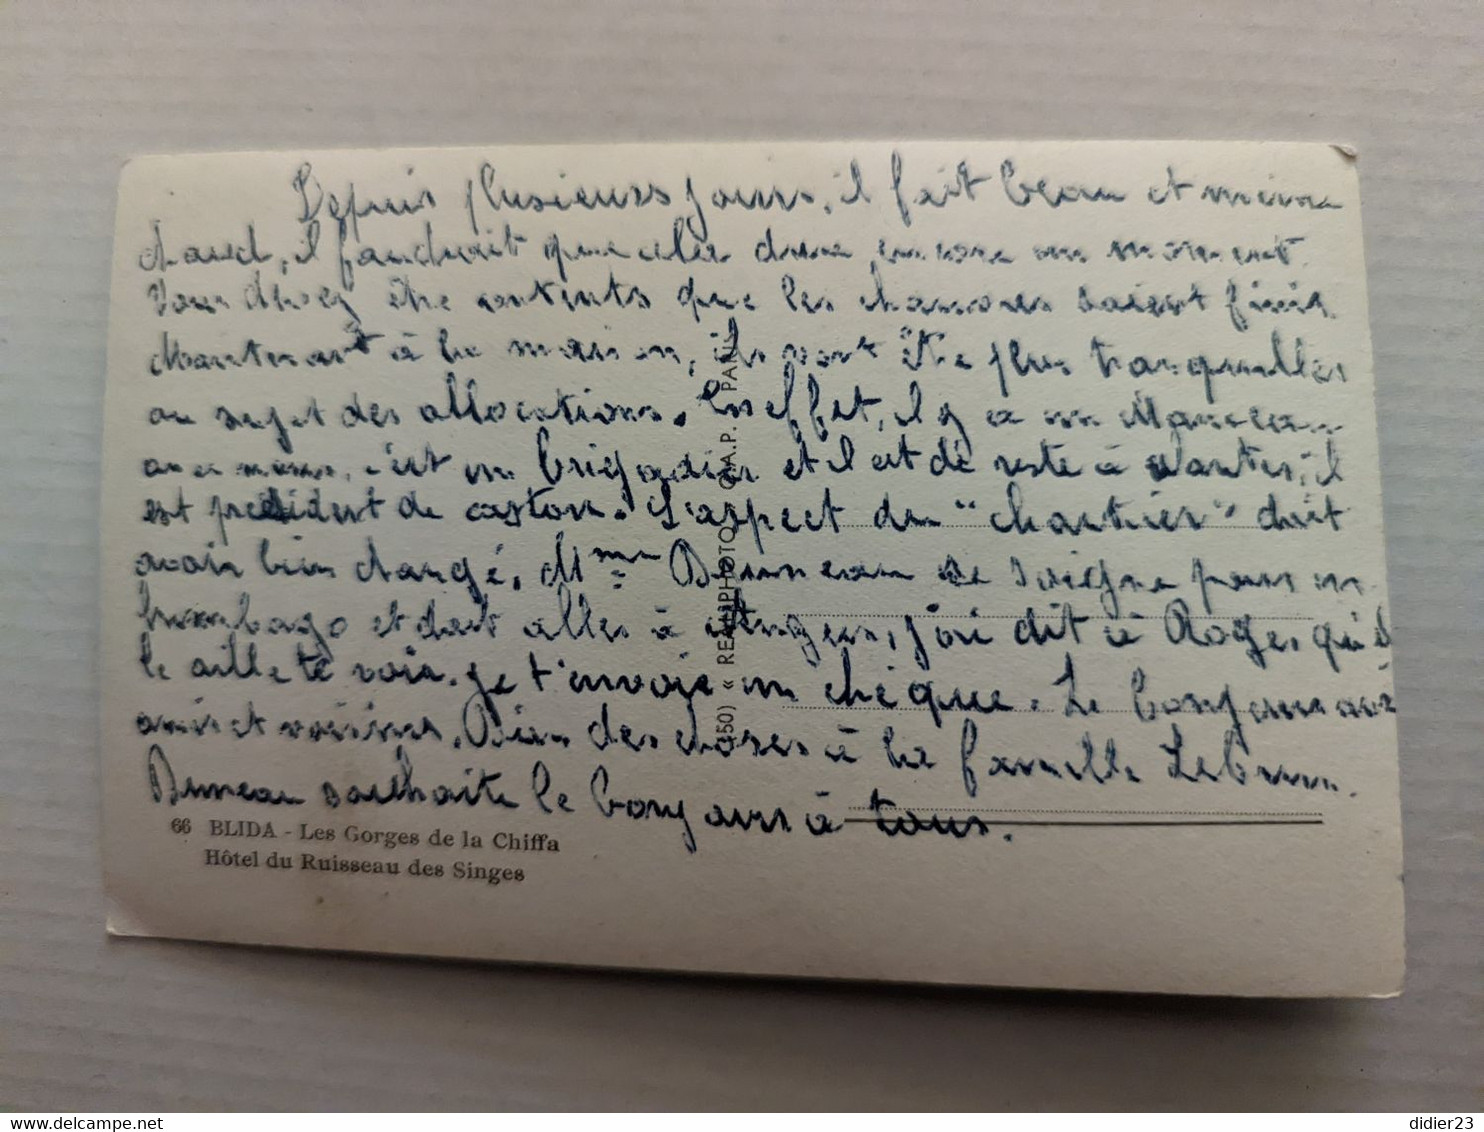 Depuis plusieurs jours, il fait beau et même
chaud, il faudrait que cela dure encore un moment.
Vous devez être contents que les chansons soient finis
Maintenant à la maison, ils vont être plus tranquilles
au sujet des allocations. En effet, il y a un
avec nous, c'est un brigadier et il est de reste à Nantes, il
est président de canton. L'aspect du "chantier" doit
avoir bien changé, Mme Bruneau se soigne pour un
lumbago et doit aller à Angers, j'ai dit à Roger qu'il
le aille te voir. Je t'envoie un chèque. Le bonjour aux
amis et voisins. Bien des choses à la famille Lebrun.
Bruneau souhaite le bonjour à tous.
66 BLIDA - Les Gorges de la Chiffa
Hôtel du Ruisseau des Singes
(50) « REALPHOTO » C.A.P. - PARIS
didier23